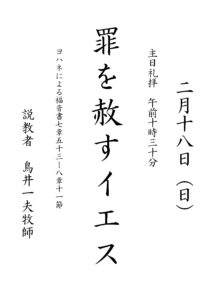 二月十八日（日）
主日礼拝　午前十時三十分
罪を赦すイエス
ヨハネによる福音書七章五十三－八章十一節
説教者　鳥井一夫牧師